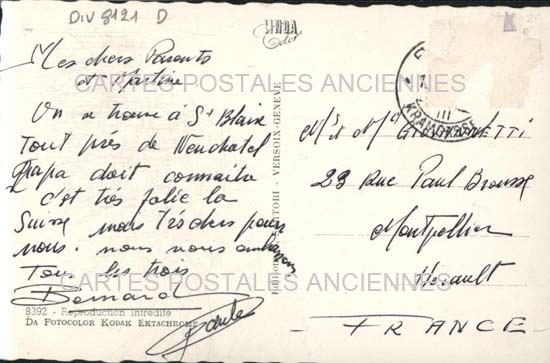 DIV 8121 D
LINDA
Color
Mes chers Parents
et Martine
On se trouve à St Blaise
Tout près de Neuchatel
Papa doit connaitre
c'est très jolie la
Suisse mais très chers pour
nous. nous nous embrassons
Tous les trois
Bernard
CARTES POSTALES ANCIENNES
CARTES POSTALES ANCIENNES
VERSOIX-GENEVE
III
Mr et Me
23 Rue Paul Brousse
Montpellier
Hérault
FRANCE
8392 - Reproduction interdite
DA FOTOCOLOR KODAK EKTACHROME